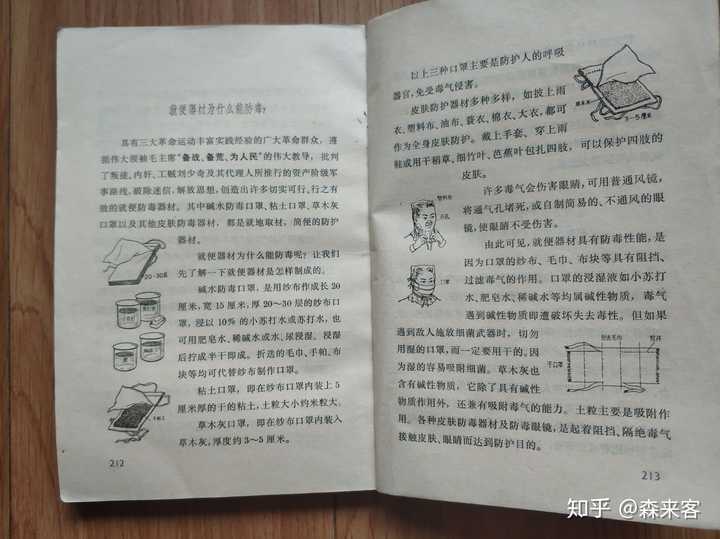 就便器材为什么能防毒?
具有三大革命运动丰富实践经验的广大革命群众，遵
循伟大领袖毛主席“备战、备荒、为人民”的伟大教导，批判
了叛徒、内奸、工贼刘少奇及其代理人所推行的资产阶级军
事路线，破除迷信，解放思想，创造出许多切实可行、行之有
效的就便防毒器材。其中碱水防毒口罩、粘土口罩、草木灰
口罩以及其他皮肤防毒器材，都是就地取材，简便的防护
器材。
就便器材为什么能防毒呢？让我们
先了解一下就便器材是怎样制成的。
碱水防毒口罩，是用纱布作成长20
厘米，宽15厘米，厚20～30层的纱布口
罩，浸以10%的小苏打水或苏打水，也
可用肥皂水、稀碱水或水、尿浸湿。浸湿
后拧成半干即成。折迭的毛巾、手帕、布
块等均可代替纱布制作口罩。
粘土口罩，即在纱布口罩内装上5
厘米厚的干的粘土，土粒大小约米粒大。
草木灰口罩，即在纱布口罩内装入
草木灰，厚度约3～5厘米。
20-30层
212
以上三种口罩主要是防护人的呼吸
器官，免受毒气侵害。
皮肤防护器材多种多样，如披上雨
衣、塑料布、油布、蓑衣、棉衣、大衣，都可
作为全身皮肤防护。戴上手套、穿上雨
鞋或用干稻草、细竹叶、芭蕉叶包扎四肢，可以保护四肢的
皮肤。
3～5厘米
许多毒气会伤害眼睛，可用普通风镜，
将通气孔堵死，或自制简易的、不通风的眼
镜，使眼睛不受伤害。
由此可见，就便器材具有防毒性能，是
因为口罩的纱布、毛巾、布块等具有阻挡、
过滤毒气的作用。口罩的浸湿液如小苏打
水、肥皂水、稀碱水等均属碱性物质，毒气
遇到碱性物质即遭破坏失去毒性。但如果
遇到敌人施放细菌武器时，切勿
用湿的口罩，而一定要用干的。因
为湿的容易吸附细菌。草木灰也
含有碱性物质，它除了具有碱性
物质作用外，还兼有吸附毒气的能力。土粒主要是吸附作
用。各种皮肤防毒器材及防毒眼镜，是起着阻挡、隔绝毒气
接触皮肤、眼睛而达到防护目的。
塑料布
口罩
干口罩
213
知乎 @森来客